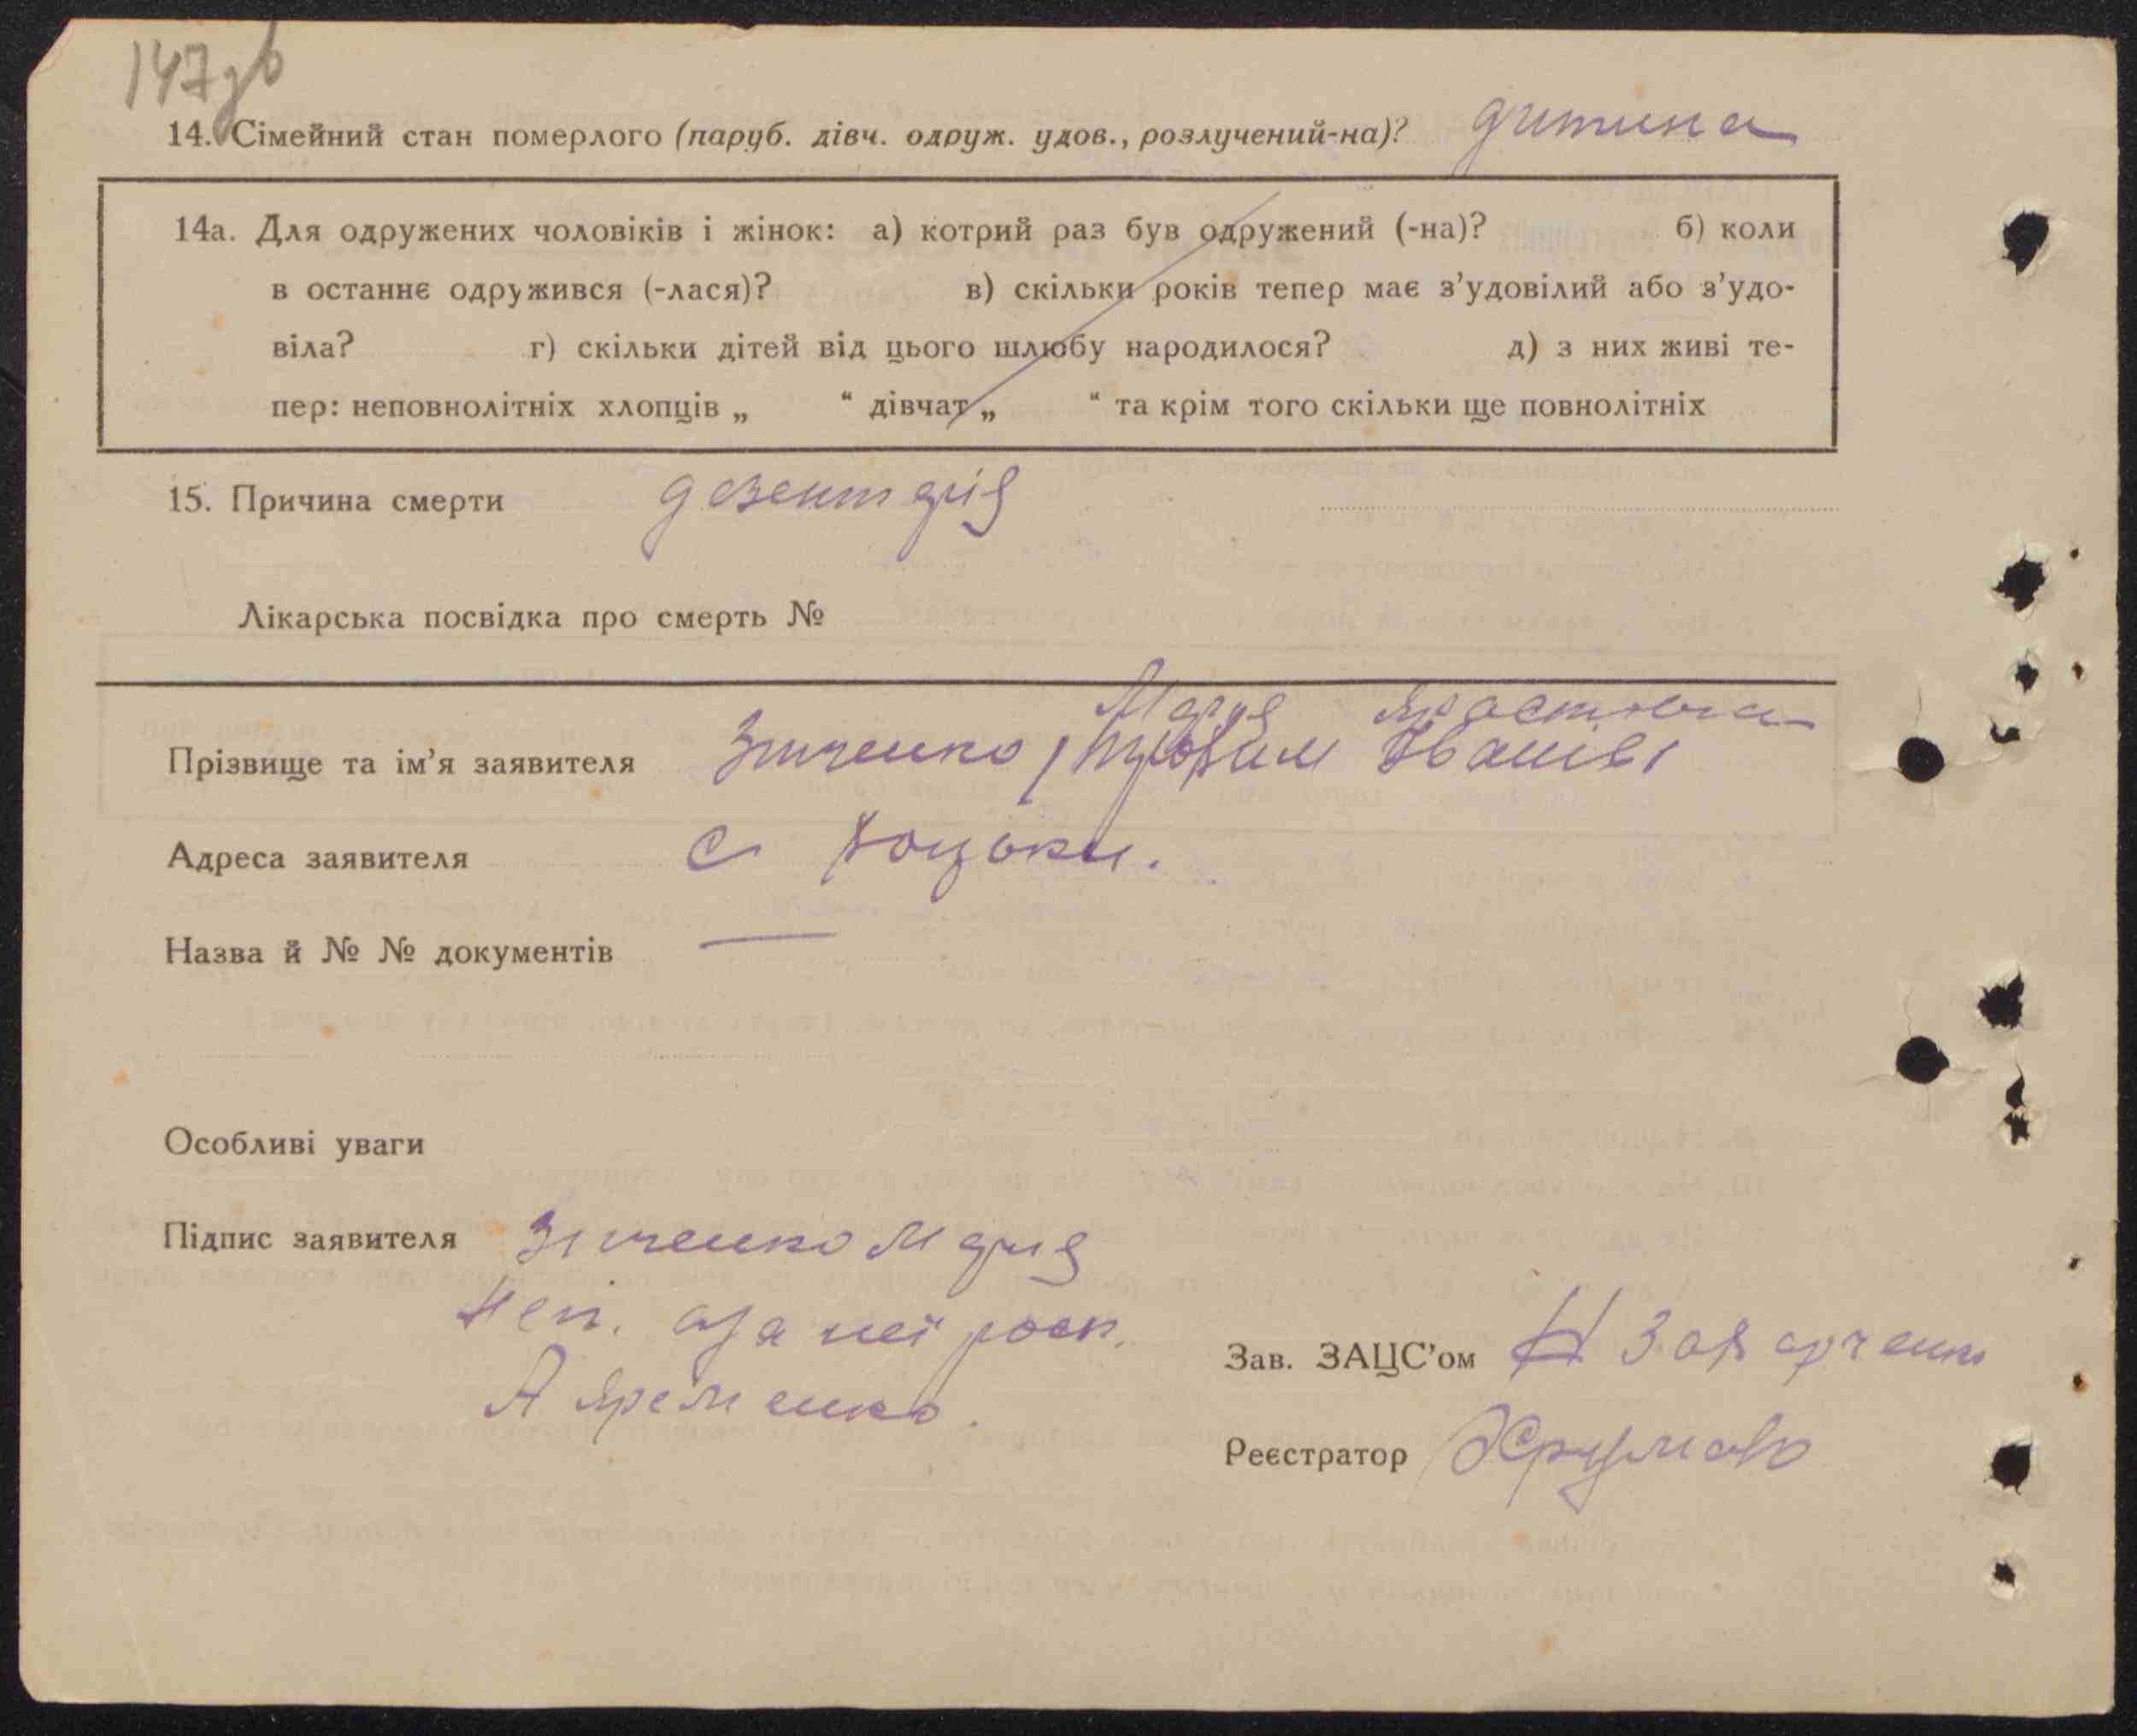 147зв
14. Сімейний стан померлого (паруб. дівч. одруж. удов., розлучений-на)? дитина
14а. Для одружених чоловіків і жінок: а) котрий раз був одружений (-на)? б) коли
в останнє одружився (-лася)? в) скільки років тепер має з’удовілий або з’удо-
віла? г) скільки дітей від цього шлюбу народилося? д) з них живі те-
пер: неповнолітніх хлопців „ “ дівчат „ “ та крім того скільки ще повнолітніх
15. Причина смерти дезентерія
Лікарська посвідка про смерть №
Марія
Прізвище та ім’я заявителя Зінченко
Адреса заявителя с. Коцюки.
Назва й № № документів —
Особливі уваги
Підпис заявителя Зінченко Марія
неп. а за неї росп.
А Яременко.
Зав. ЗАЦС’ом
Реєстратор